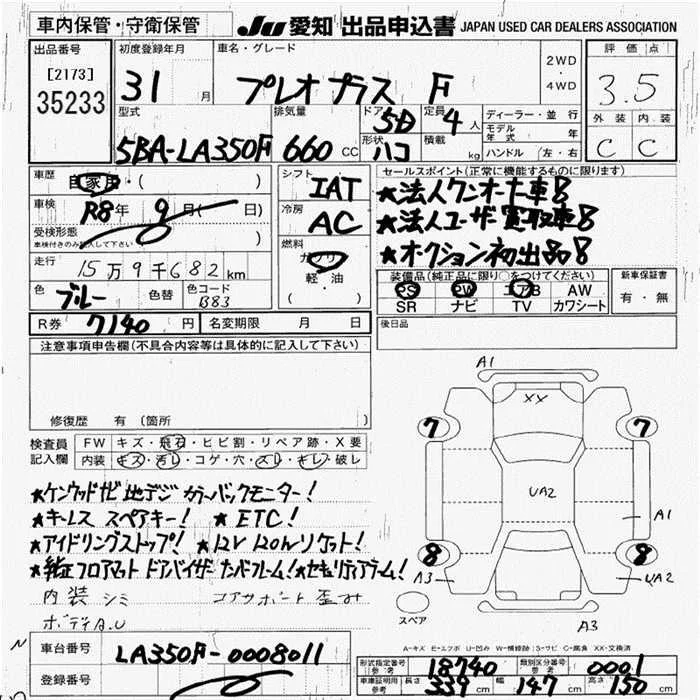 車内保管・守衛保管 JU 愛知 出品申込書 JAPAN USED CAR DEALERS ASSOCIATION
出品番号 初度登録年月 車名・グレード 2WD・4WD 評価点
[2173] 31 月 プレオプラス F 3.5
35233
型式 排気量 ドア 5D 定員 4人 ディーラー・並行 外装 内装
5BA-LA350F 660 CC 形状 ハコ 積載 kg モデル年式 年 C C
ハンドル (左・右)
車歴 自家用・( ) シフト IAT セールスポイント(正常に機能するものに限ります)
車検 R8年 9月( 日) 冷房 AC ★法人ワンオーナー車!
受検形態 ★法人ユーザー買取車!
車検付きのみ記入して下さい ) 燃料 ガソリン ★オクション初出品!
走行 15万9千682km 軽油
( )
装備品(純正品に限り○をつけてください) 新車保証書
色 ブルー 色替 色コード B83 PS PW エアB AW 有・無
SR ナビ TV カワシート
R券 7140円 名変期限 月 日 後日品
注意事項申告欄(不具合内容等は具体的に記入して下さい)
修復歴 有 (箇所
検査員記入欄 FW キズ・飛石・ヒビ割・リペア跡・X要
内装 キズ・汚レ・コゲ・穴・スレ・キレ・破レ
★ケンウッドナビ 地デジ カラーバックモニター!
★キーレス スペアキー! ★ETC!
★アイドリングストップ! ★12V 120Wソケット!
★純正フロアマット ドアバイザー ナンバーフレーム!★セキュリティアラーム!
内装シミ コアサポート歪み
ボデイA.U
A1
XX
7 7
UA2
A1
8 8
A3 UA2
スペア
A3
A-キズ E-エクボ U-凹み W-補修跡 S-サビ C-腐食 XX-交換済
N 車台番号 LA350F-0008011
登録番号
形式指定番号 参考 18740 類別区分番号 参考 0001
車庫証明用 参考 長さ 339cm 幅 147cm 高さ 150cm